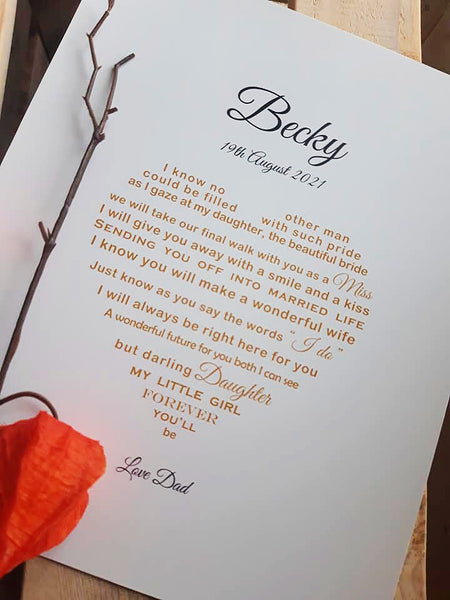 Becky
19th August 2021
I know no other man
could be filled with such pride
as I gaze at my daughter, the beautiful bride
we will take our final walk with you as a Miss
I will give you away with a smile and a kiss
SENDING YOU OFF INTO MARRIED LIFE
I know you will make a wonderful wife
Just know as you say the words "I do"
I will always be right here for you
A wonderful future for you both I can see
but darling Daughter
MY LITTLE GIRL
FOREVER
YOU'LL
be
Love Dad